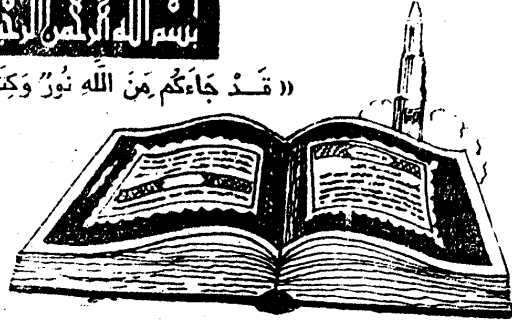 بسم الله الرحمن الرحيم
(( قَـدْ جَاءَكُم مِنَ اللَّهِ نُورٌ وَكِتَ